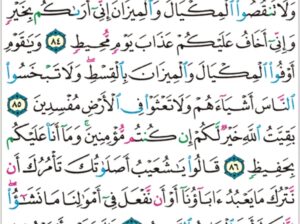 وَلَا تَنقُصُوا۟ ٱلْمِكْيَالَ وَٱلْمِيزَانَ إِنِّىٓ أَرَىٰكُم بِخَيْرٍ
وَإِنِّىٓ أَخَافُ عَلَيْكُمْ عَذَابَ يَوْمٍ مُّحِيطٍ ٨٤ وَيَٰقَوْمِ
أَوْفُوا۟ ٱلْمِكْيَالَ وَٱلْمِيزَانَ بِٱلْقِسْطِ وَلَا تَبْخَسُوا۟
ٱلنَّاسَ أَشْيَآءَهُمْ وَلَا تَعْثَوْا۟ فِى ٱلْأَرْضِ مُفْسِدِينَ ٨٥
بَقِيَّتُ ٱللَّهِ خَيْرٌ لَّكُمْ إِن كُنتُم مُّؤْمِنِينَ وَمَآ أَنَا۠ عَلَيْكُم
بِحَفِيظٍ ٨٦ قَالُوا۟ يَٰشُعَيْبُ أَصَلَوٰتُكَ تَأْمُرُكَ أَن
نَّتْرُكَ مَا يَعْبُدُ ءَابَآؤُنَآ أَوْ أَن نَّفْعَلَ فِىٓ أَمْوَٰلِنَا مَا نَشَٰٓؤُا۟